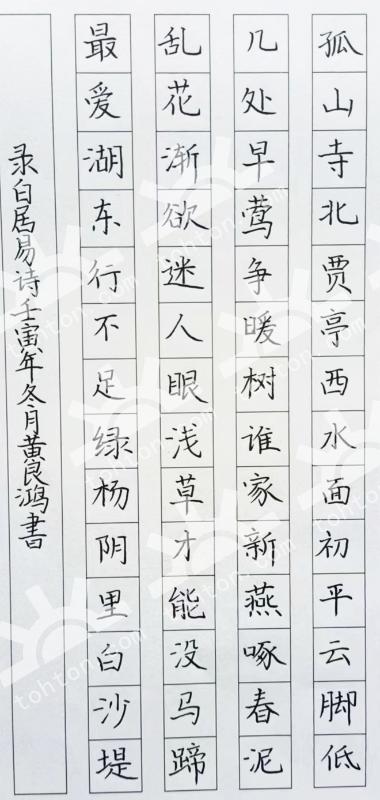 孤山寺北贾亭西水面初平云脚低
几处早莺争暖树谁家新燕啄春泥
乱花渐欲迷人眼浅草才能没马蹄
最爱湖东行不足绿杨阴里白沙堤
录白居易诗壬寅年冬月黄良鸿書
tohton.com